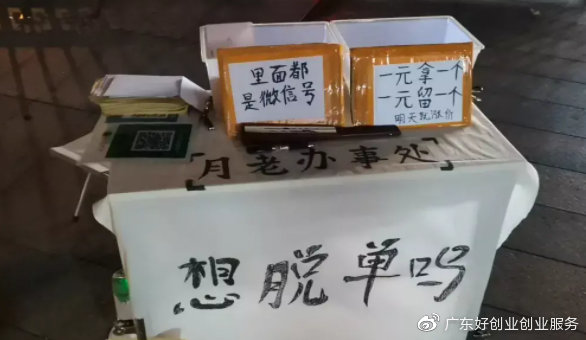 里面都
是微信号
一元拿一个
一元留一个
明天就涨价
「月老办事处」
想脱单吗
@广东好创业创业服务